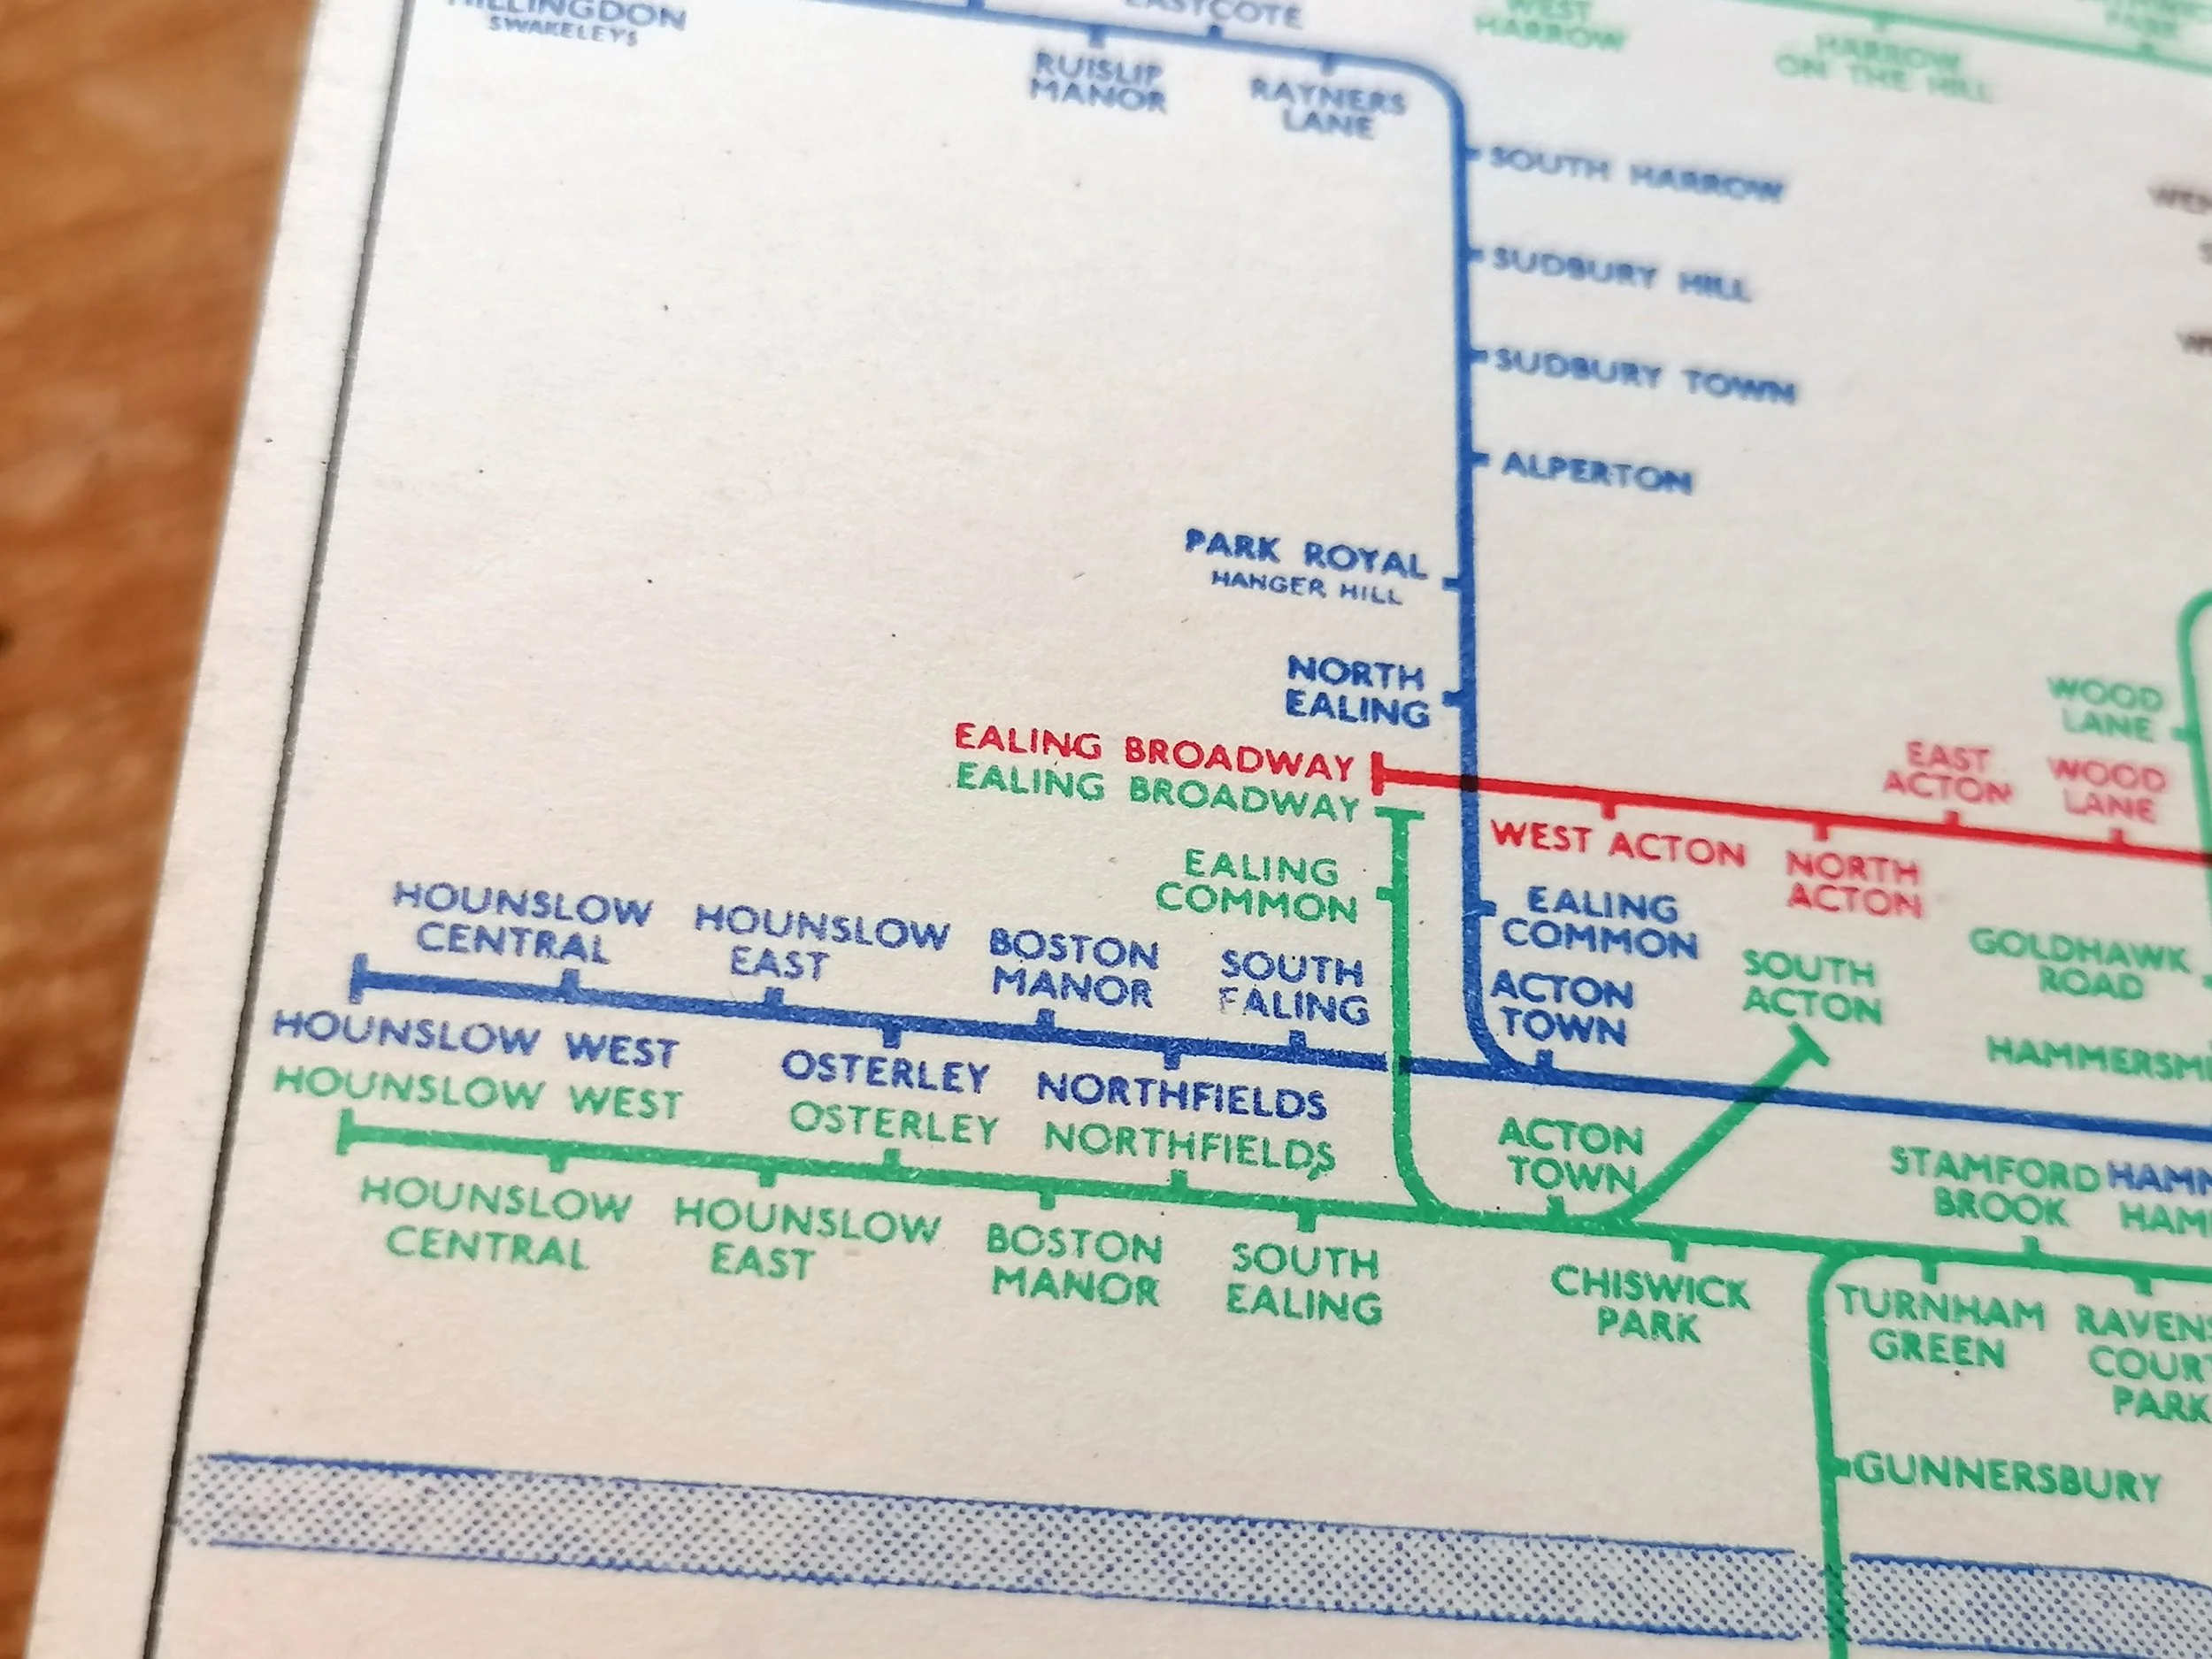 HILLINGDON
SWAKELEYS
EASTCOTE
RUISLIP
MANOR
RAYNERS
LANE
WEST
HARROW
HARROW
ON THE HILL
PARK
SOUTH HARROW
SUDBURY HILL
SUDBURY TOWN
ALPERTON
PARK ROYAL
HANGER HILL
NORTH
EALING
EALING BROADWAY
EALING BROADWAY
WEST ACTON
NORTH
ACTON
EAST
ACTON
WOOD
LANE
WOOD
LANE
EALING
COMMON
EALING
COMMON
ACTON
TOWN
SOUTH
ACTON
GOLDHAWK
ROAD
HAMMERSMI
HOUNSLOW
CENTRAL
HOUNSLOW
EAST
BOSTON
MANOR
SOUTH
EALING
HOUNSLOW WEST
OSTERLEY
NORTHFIELDS
HOUNSLOW WEST
OSTERLEY
NORTHFIELDS
ACTON
TOWN
STAMFORD
BROOK
HAMM
HAM
HOUNSLOW
CENTRAL
HOUNSLOW
EAST
BOSTON
MANOR
SOUTH
EALING
CHISWICK
PARK
TURNHAM
GREEN
RAVENS
COURT
PARK
GUNNERSBURY